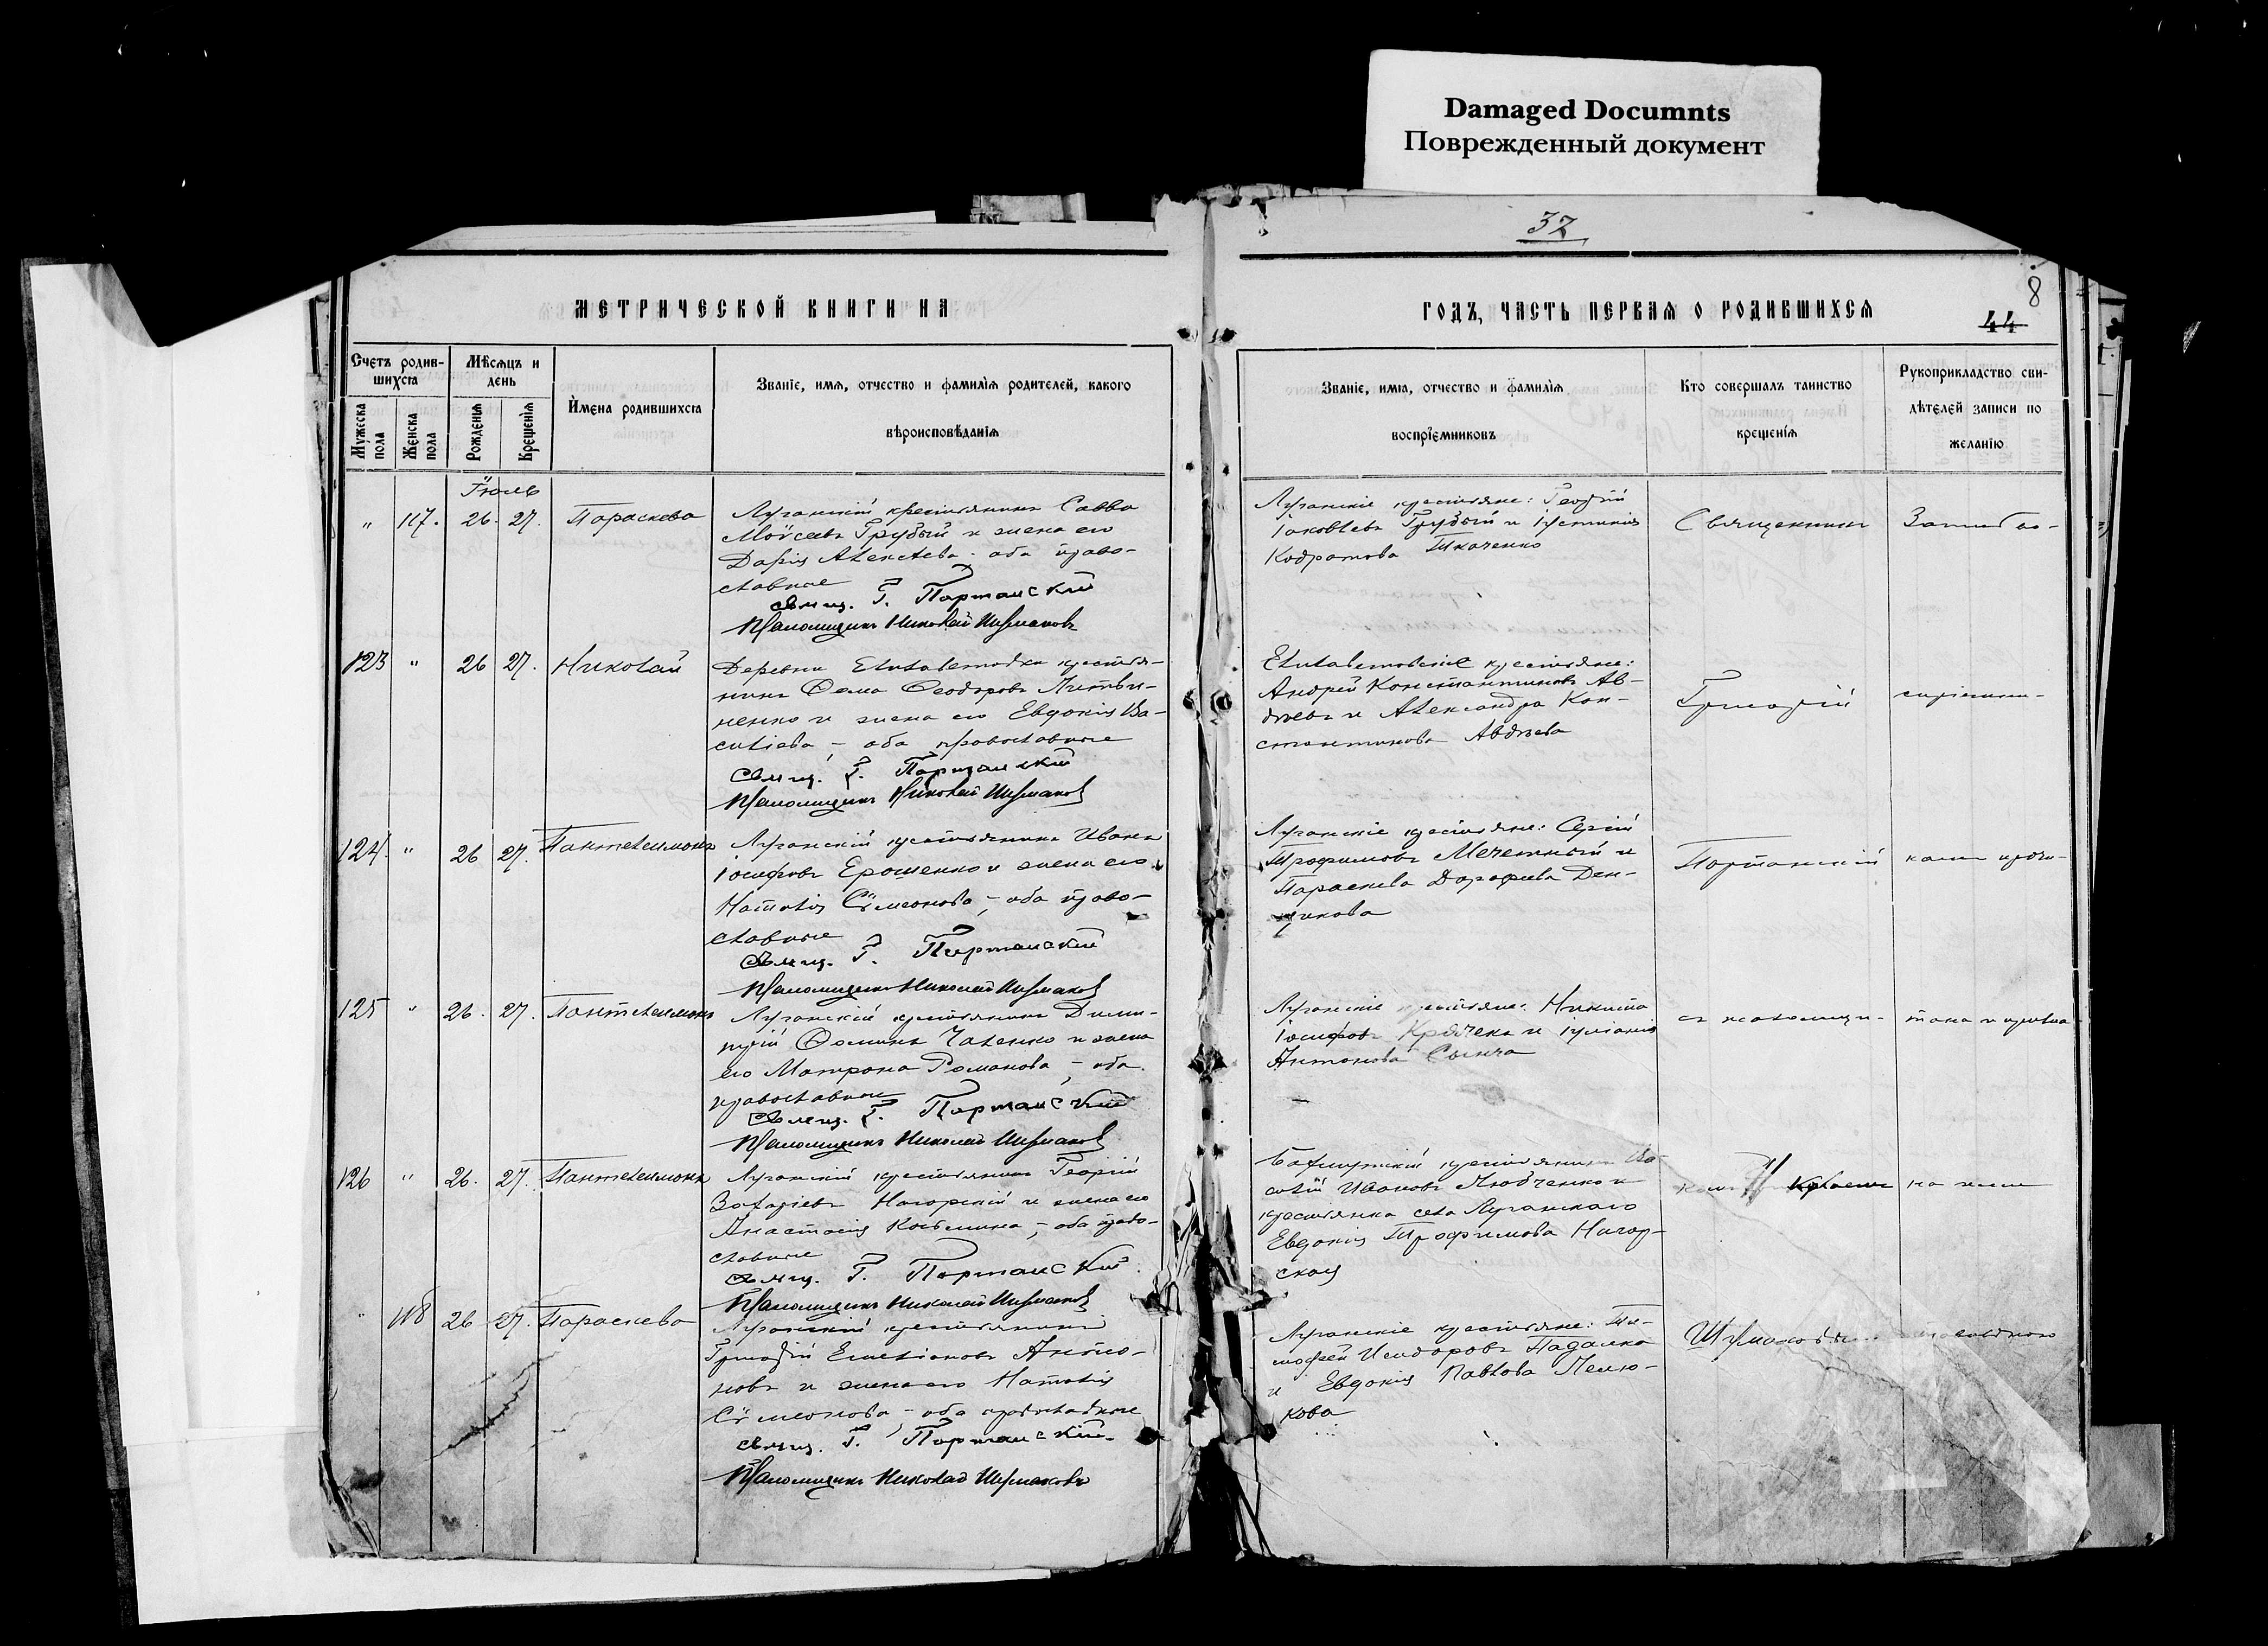 Damaged Documnts
Поврежденный документ
37
8
44
МЕТРИЧЕСКОЙ КНИГИ НА
ГОДЪ, ЧАСТЬ ПЕРВАЯ О РОДИВШИХСЯ
Счетъ родив-
шихся
Мужеска
пола
Женска
пола
Мѣсяцъ и
день
Рожденія
Крещенія
Имена родившихся
Званіе, имя, отчество и фамилія родителей, какого
вѣроисповѣданія
Званіе, имя, отчество и фамилія
воспріемниковъ
Кто совершалъ таинство
крещенія
Рукоприкладство сви-
дѣтелей записи по
желанію
Іюль
" 117. 26. 27. Параскева
Луганскій крестьянинъ Савва
Моѵсеевъ Грубый и жена его
Дарія Алексѣева - оба право-
славные
Свящ. Г. Портанскій
Псаломщикъ Николай Шумаковъ
Луганскіе крестьяне: Георгій
Іаковлевъ Грубый и Іустинія
Кодратова Ткаченко
Священникъ
123 " 26 27. Николай
Деревни Елисаветовки крестья-
нинъ Ѳома Ѳеодоровъ Литви-
ненко и жена его Евдокія Ва-
силіева - оба православные
Свящ. Г. Портанскій
Псаломщикъ Николай Шумаковъ
Елисаветовскіе крестьяне:
Андрей Константиновъ Ав-
дѣевъ и Александра Кон-
стантинова Авдѣева
Григорій
124. " 26 27. Пантелеимонъ
Луганскій крестьянинъ Иванъ
Іосифовъ Ерошенко и жена его
Наталія Сѵмеонова - оба право-
славные
Свящ. Г. Портанскій
Псаломщикъ Николай Шумаковъ
Луганскіе крестьяне: Сергій
Трофимовъ Мечетный и
Параскева Дорофеева Ден-
щикова
Портанскій
125 " 26. 27. Пантелеимонъ
Луганскій крестьянинъ Дими-
трій Ѳоминъ Чаленко и жена
его Матрона Романова - оба
православные
Свящ. Г. Портанскій
Псаломщикъ Николай Шумаковъ
Луганскіе крестьяне: Никита
Іосифовъ и Іуліанія
Антонова
съ псаломщи-
126 " 26. 27. Пантелеимонъ
Луганскій крестьянинъ Георгій
Захаріевъ Нагорскій и жена его
Анастасія Косьмина, - оба право-
славные
Свящ. Г. Портанскій
Псаломщикъ Николай Шумаковъ
Бахмутскій крестьянинъ Ва-
силій Ивановъ Любченко и
крестьянка села Луганскаго
Евдокія Трофимова Нагор-
ская
комъ
" 118 26 27. Параскева
Луганскій крестьянинъ
Григорій Емеліановъ Анто-
новъ и жена его Наталія
Сѵмеонова - оба православные
Свящ. Г. Портанскій
Псаломщикъ Николай Шумаковъ
Луганскіе крестьяне: Ти-
мофей Исидоровъ Падалка
и Евдокія Павлова
кова
Шумаковымъ